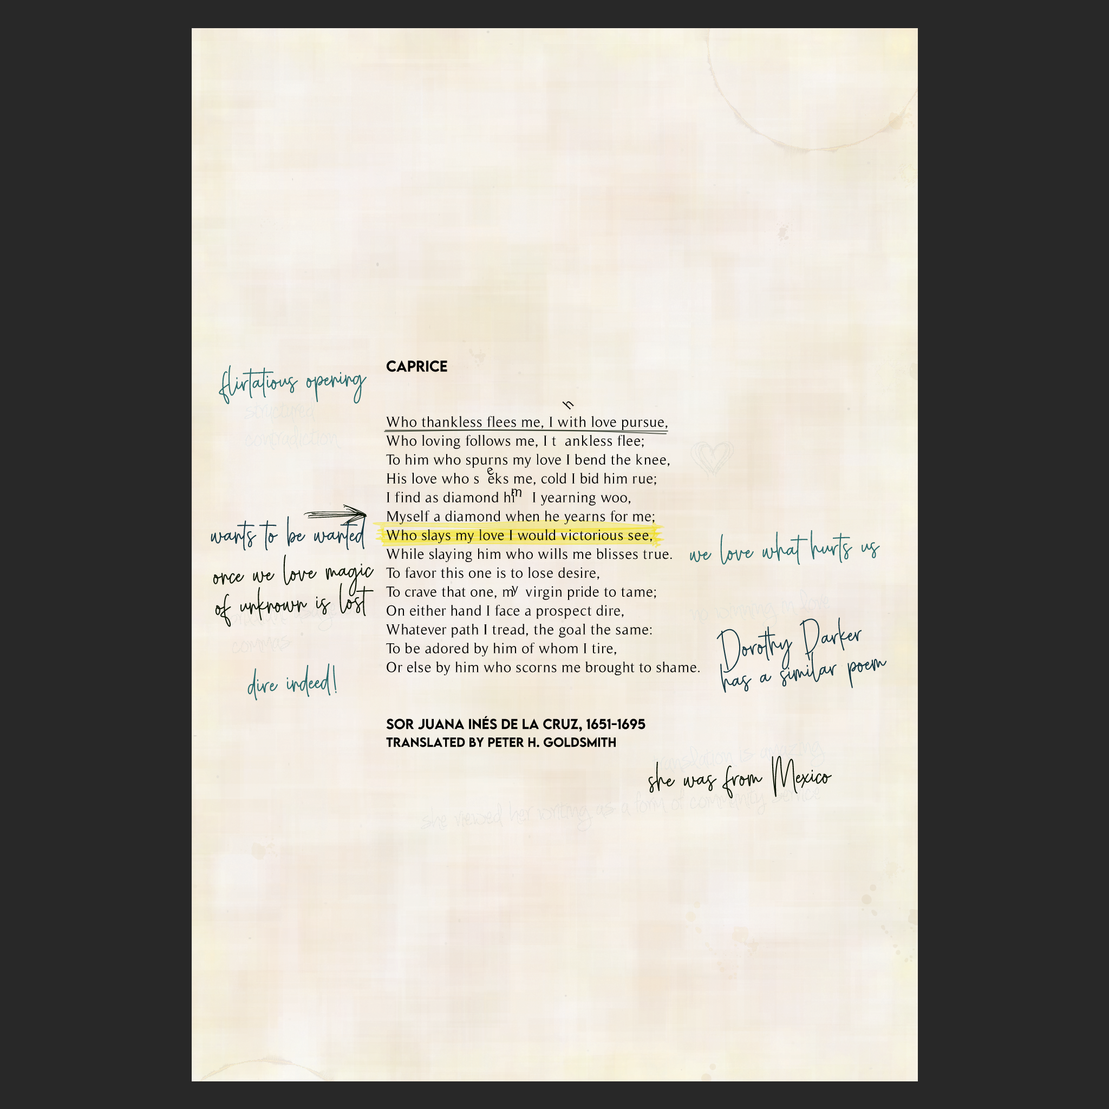 CAPRICE
flirtatious opening
Who thankless flees me, I with love pursue,
Who loving follows me, I thankless flee;
To him who spurns my love I bend the knee,
His love who seeks me, cold I bid him rue;
I find as diamond him I yearning woo,
Myself a diamond when he yearns for me;
wants to be wanted
Who slays my love I would victorious see,
While slaying him who wills me blisses true.
we love what hurts us
once we love magic
of unknown is lost
To favor this one is to lose desire,
To crave that one, my virgin pride to tame;
On either hand I face a prospect dire,
Whatever path I tread, the goal the same:
To be adored by him of whom I tire,
Or else by him who scorns me brought to shame.
Dorothy Parker
has a similar poem
dire indeed!
SOR JUANA INÉS DE LA CRUZ, 1651-1695
TRANSLATED BY PETER H. GOLDSMITH
she was from Mexico
she viewed her writing as a form of community service